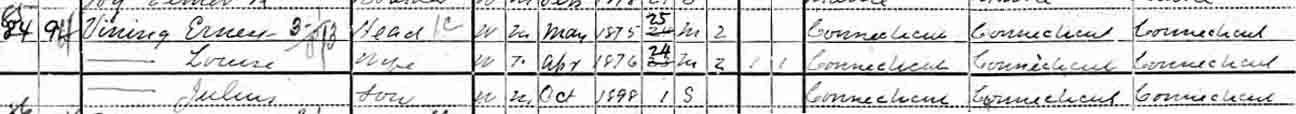 84 94 Vining Ernest Head W M May 1875 25 24 M 2 Connecticut Connecticut Connecticut
Louise Wife W F Apr 1876 24 23 M 2 1 1 Connecticut Connecticut Connecticut
Julius Son W M Oct 1898 1 S Connecticut Connecticut Connecticut